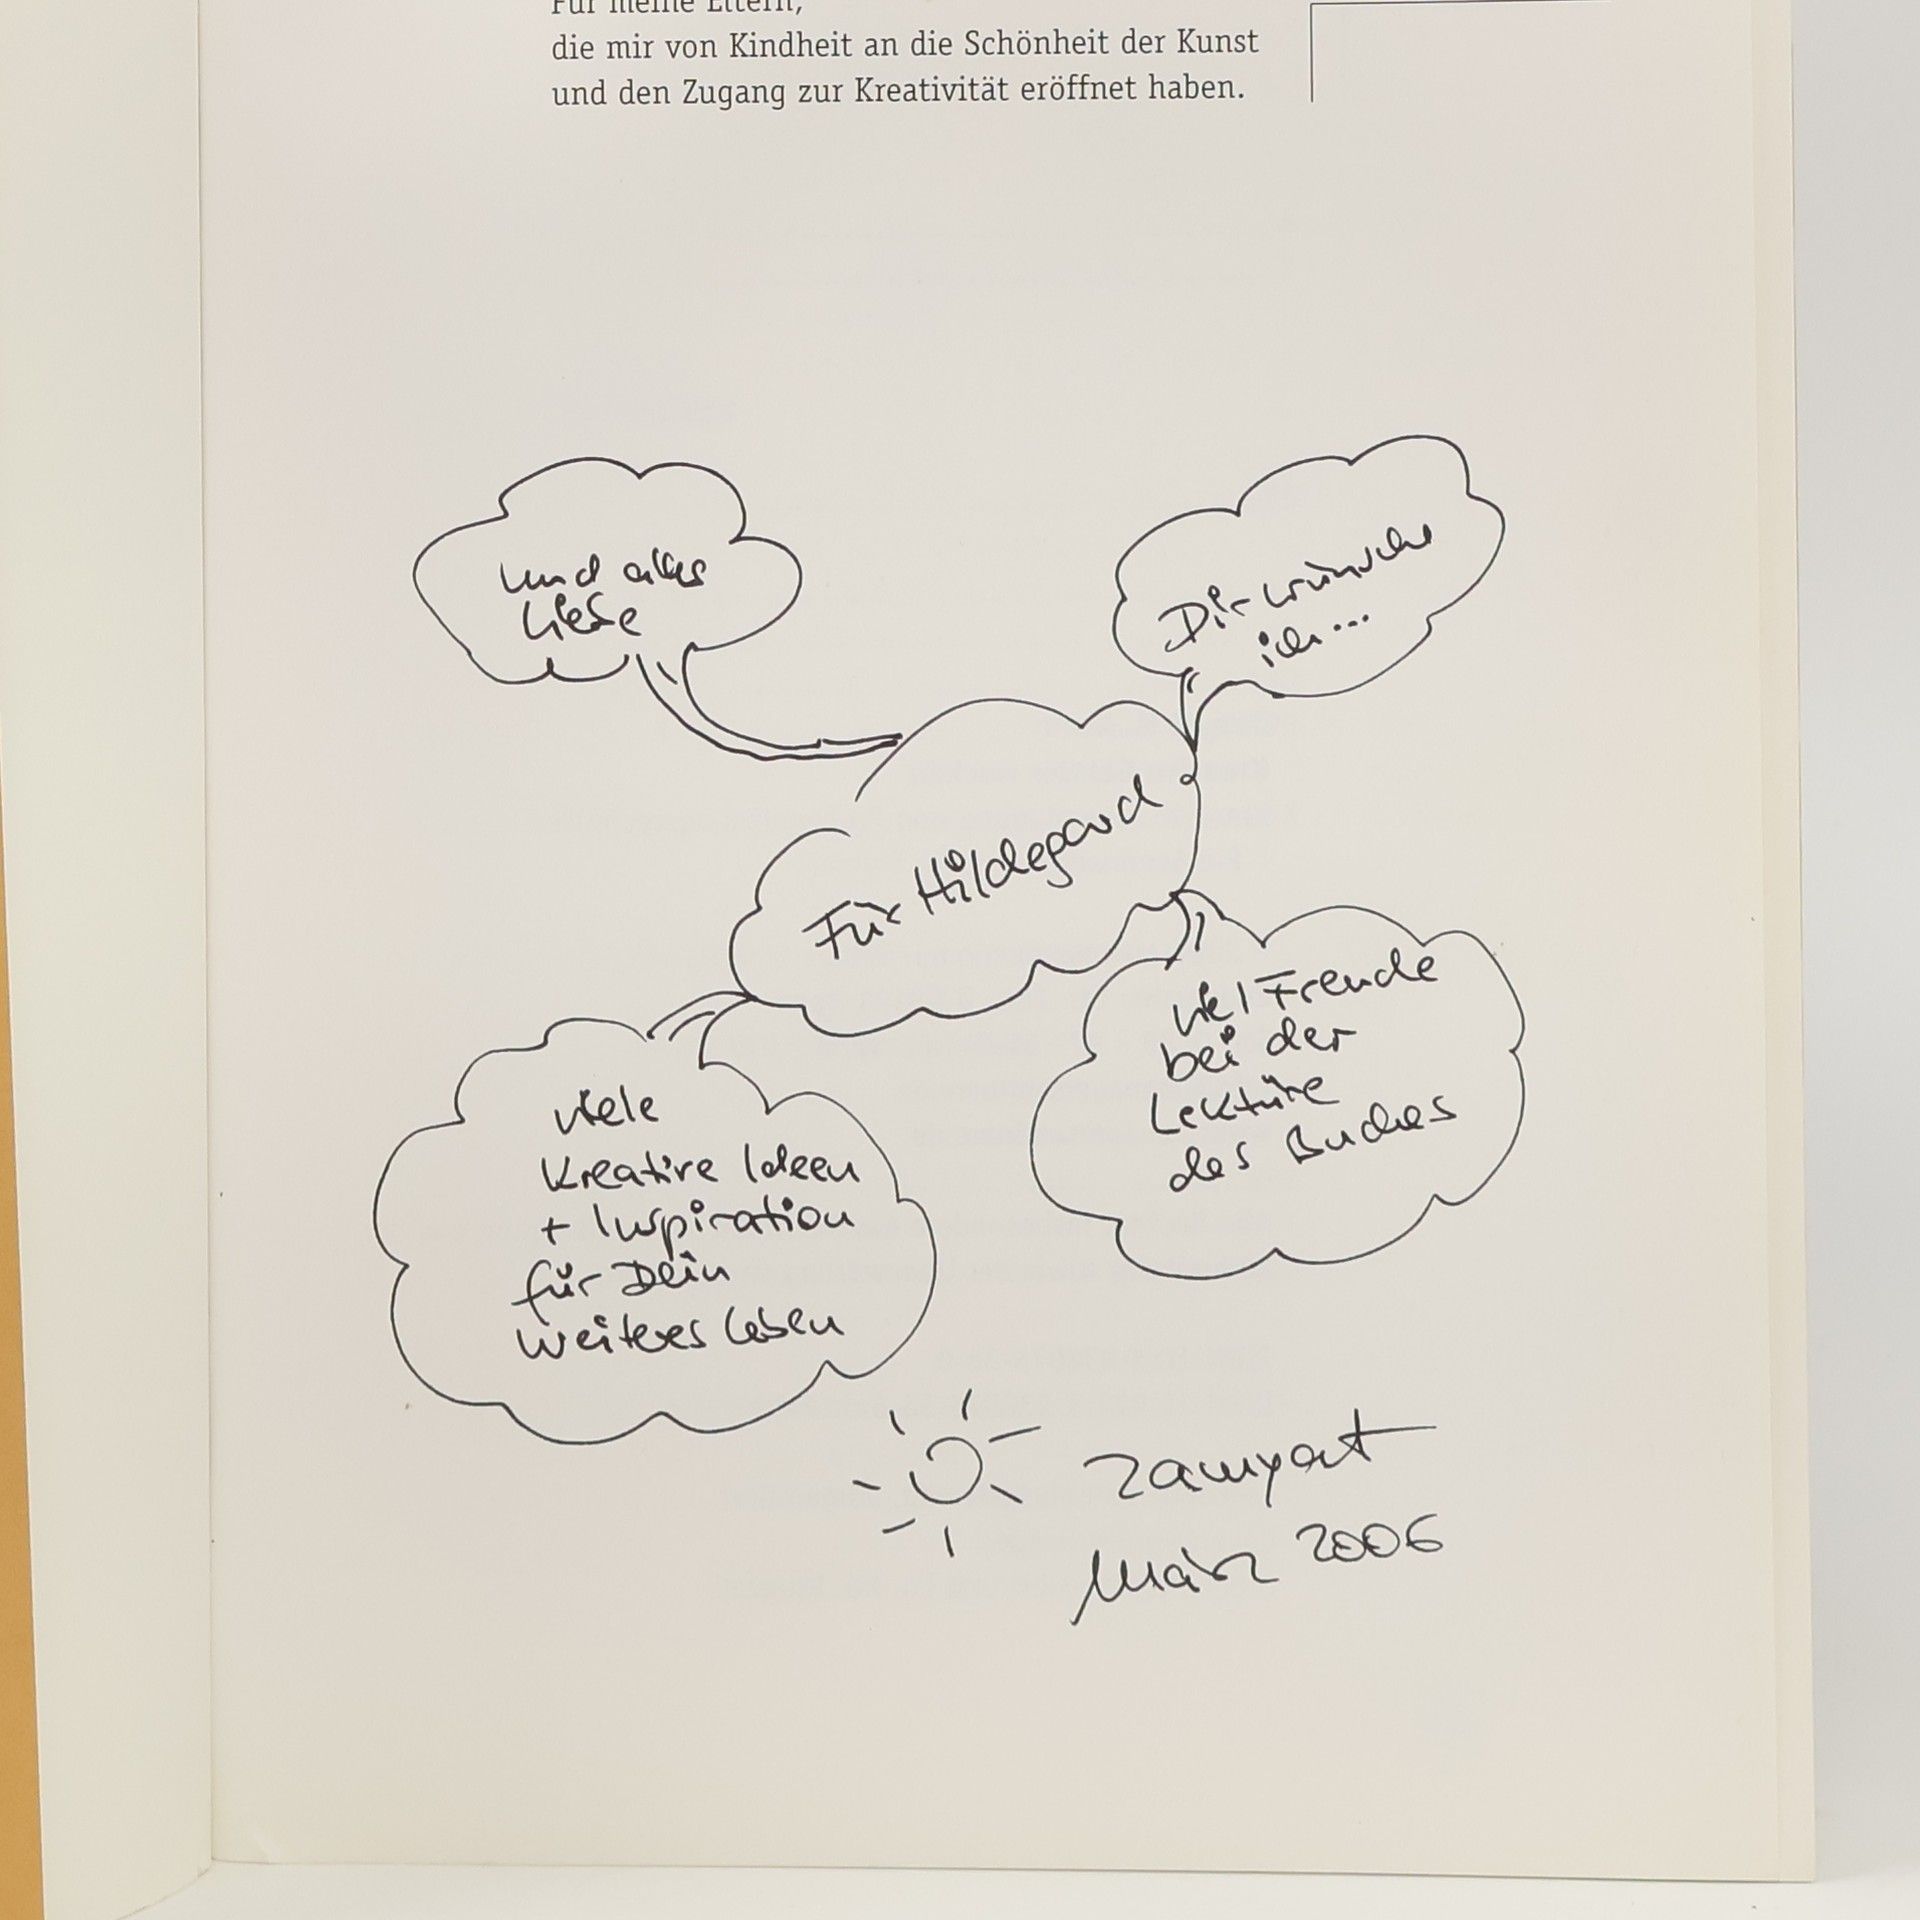 Für meine Eltern,
die mir von Kindheit an die Schönheit der Kunst
und den Zugang zur Kreativität eröffnet haben.
Für Hildegard
Dir wünsche
ich...
viel Freude
bei der
Lektüre
des Buches
viele
kreative Ideen
+ Inspiration
für Dein
weiteres Leben
und alles
Liebe
März 2006